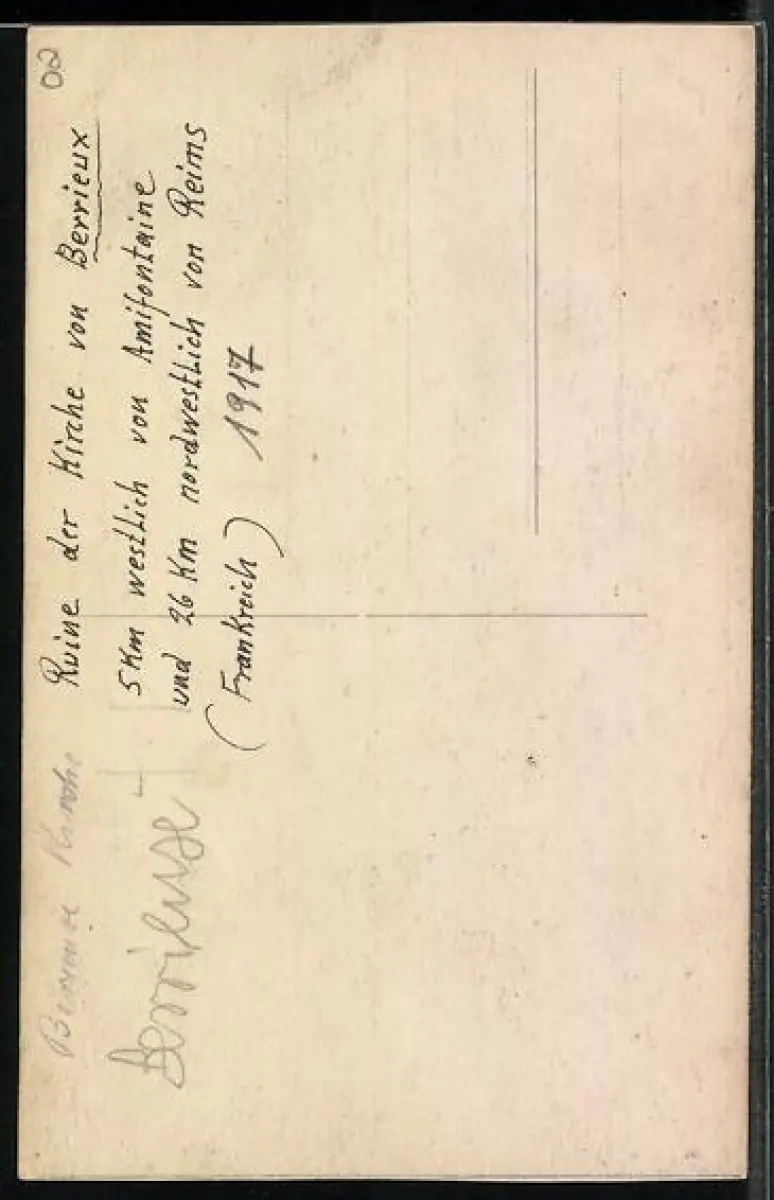 Ruine der Kirche von Berrieux
5 Km westlich von Amifontaine
und 26 Km nordwestlich von Reims
(Frankreich) 1917
02